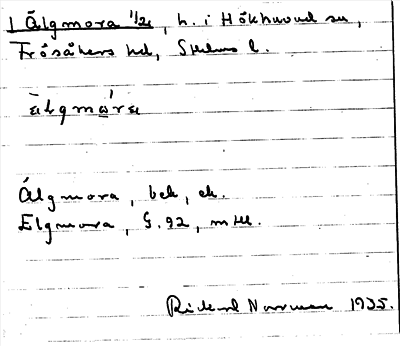 1 Älgmora 1/2, h. i Hökhuvud sn,
Frösåkers hd, Sthlms l.
Älgmora, bek, ek.
Elgmora, G.92, mtl.
Rickard Norrman 1935.